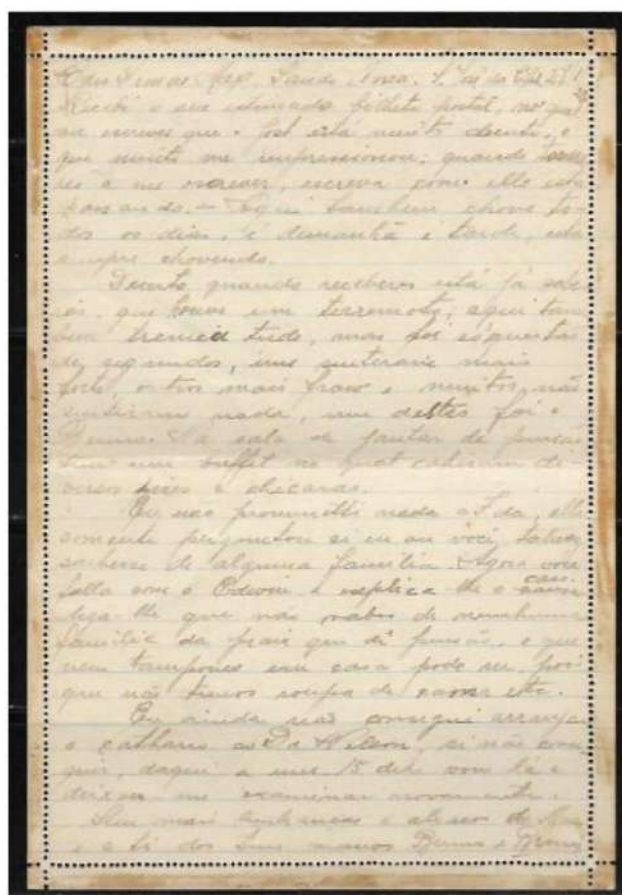 Saude S. José do
Recebi o seu estimado bilhete postal, no qual
me escreves que . José está muito doente, o
que muito me impressionou; quando torna
res a me escrever, escreva como elle está
passando. - Aqui tambem chove to-
dos os dias, é demanhã e tarde, está
sempre chovendo.
quando receberes está já sabe
rás, que houve um terremoto, aqui tam
bem tremeu tudo, mas foi só questão
de segundos, uns sentiram mais
forte outros mais fraco e muitos não
sentiram nada, um destes foi o
Na sala de jantar da pensão
tem um buffet no qual cahiram di-
versos pires e chicaras.
Eu não prometti nada a Ida, ella
somente perguntou si eu ou você, talvez
soubesse de alguma familia. Agora você
falla com o e explica-lhe o caso.
diga-lhe que não sabes de nenhuma
familia da praia que dê pensão, e que
nem tampouco em casa pode ser, pois
que não temos roupa de cama etc.
Eu ainda não consegui arranjar
o catharro Wilson, si não conse
guir, daqui a uns 15 dias vou lá e
deixou me examinar novamente.
Sem mais lembranças e abraços de
e a ti dos seus manos Bruno e